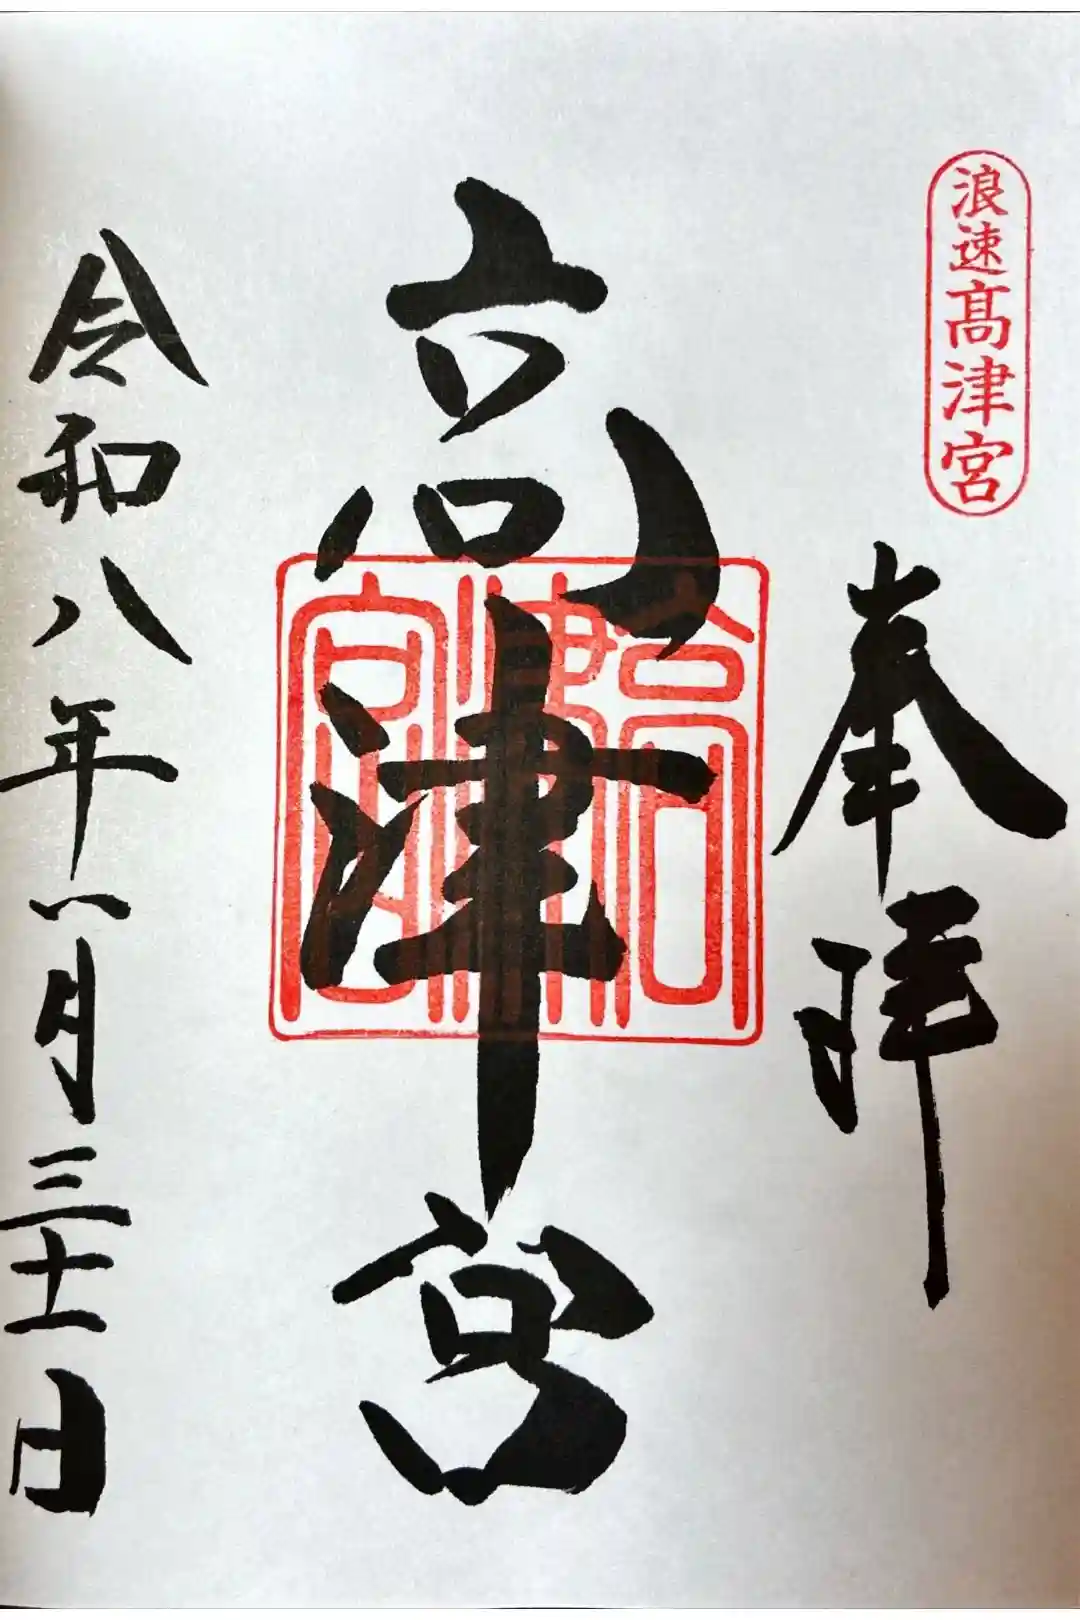 浪速髙津宮
奉拝
高津宮
高津宮
令和八年八月三十一日